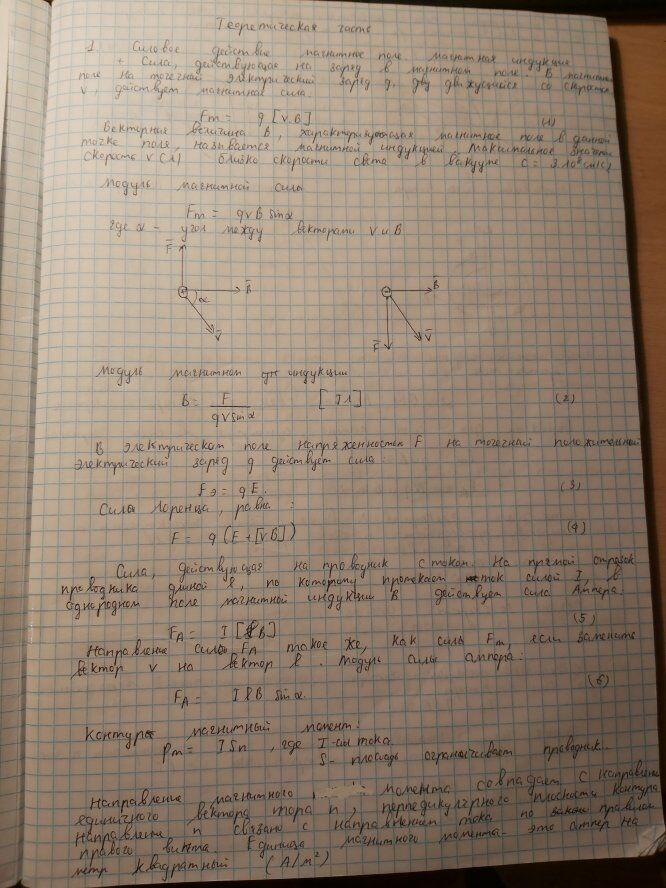 Теоретическая часть
1. Силовое действие магнитное поле магнитная индукция
+ Сила, действующая на заряд в магнитном поле. В магнитном
поле на точечный электрический заряд q, движущийся со скоростью
v, действует магнитная сила.
Fm = q [v.B] (1)
Векторная величина B, характеризующая магнитное поле в данной
точке поля, называется магнитной индукцией. Максимальное значение
скорость v близко скорости света в вакууме c = 3.10⁸ (м/с)
Модуль магнитной сила
Fm = qvB sinα
где α - угол между векторами v и B
F̄
B̄
α
V̄
B̄
F̄
V̄
Модуль магнитном индукции
B = F / qvsinα [Тл] (2)
В электрическом поле напряженностью F на точечный положительный
электрический заряд q действует сила:
Fэ = qE. (3)
Силы Лоренца, равна:
F = q (E + [vB]) (4)
Сила, действующая на проводник с током. На прямой отрезок
проводника длиной ℓ, по которому протекает ток силой I, в
однородном поле магнитной индукции B действует сила Ампера:
FA = I [ℓB] (5)
Направление силы FA такое же, как силы Fm, если заменить
вектор v на вектор ℓ. Модуль силы ампера:
FA = IℓB sinα (6)
Контур магнитный момент:
Pm = ISn, где I - тока
S - площадь ограничивает проводник.
Направление магнитного момента совпадает с направлен
единичного вектора n, перпедикулярного плоскости контура
Направление n связано с направлением тока по правилом
правого винта. Единица магнитного момента - это ампер на
метр квадратный (А/м²)